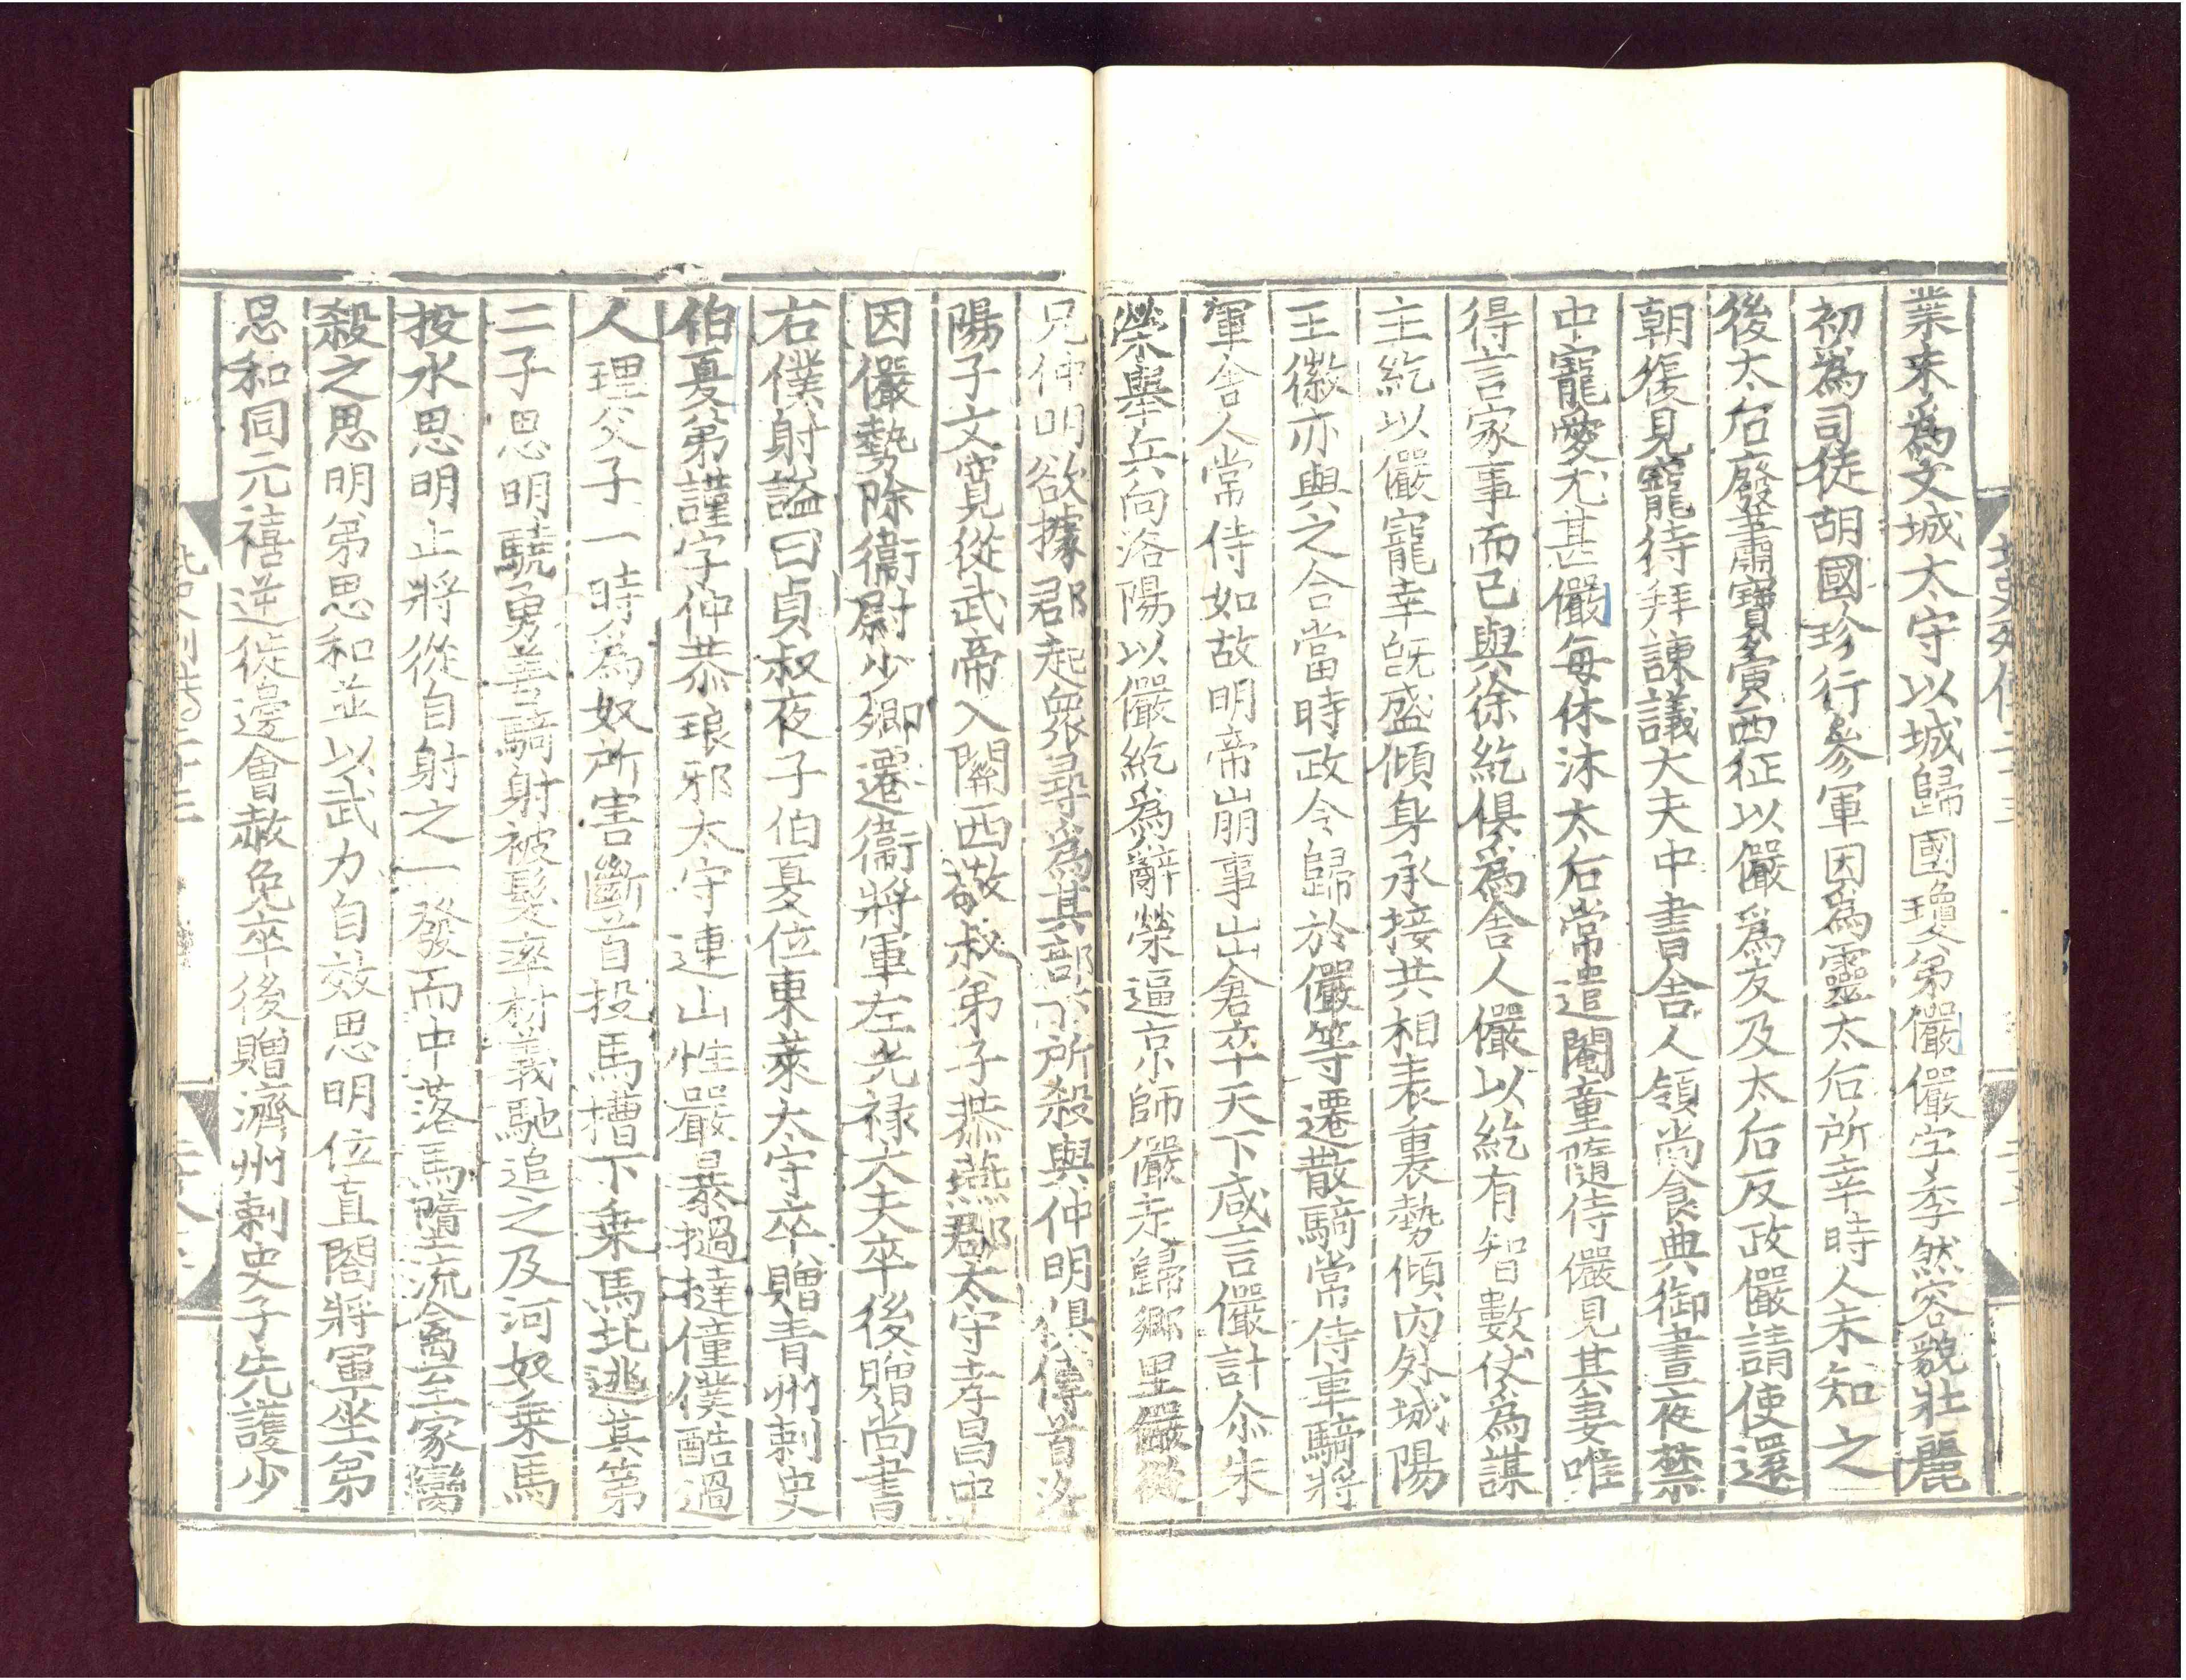 業末爲文城太守以城歸國瓊弟儼儼字季然容貌壯麗
初為司徒胡國珍行參軍因爲靈太后所幸時人未知之
後太后廢蕭寶夤西征以儼爲友及太后反政儼請使還
朝復見寵待拜諫議大夫中書舍人領尚食典御晝夜禁
中寵愛尤甚儼每休沐太后常遣閹童隨侍儼見其妻唯
得言家事而已與徐紇俱爲舍人儼以紇有智數伏為謀
主紇以儼寵幸既盛傾身承接共相表裏勢傾内外城陽
王徽亦與之合當時政令歸於儼等遷散騎常侍車騎將
軍舍人常侍如故明帝崩事出倉卒天下咸言儼計尒朱
榮舉兵向洛陽以儼紇爲辭榮逼京師儼走歸鄉里儼從
兄仲明欲據郡起衆尋爲其部下所殺與仲明俱傳首洛
陽子文寬從武帝入關西敬叔弟子恭燕郡太守孝昌中
因儼勢除衛尉少卿遷衛將軍左光禄大夫卒後贈尚書
右僕射謚曰貞叔夜子伯夏位東萊太守卒贈青州刺史
伯夏弟謹字仲恭琅邪太守連山性嚴暴撾撻僮僕酷過
人理父子一時爲奴所害斷首投馬槽下乗馬北逃其第
二子思明驍勇善騎射被髮率村義馳追之及河奴乗馬
投水思明止將從自射之一發而中落馬墮流禽至家臠
殺之思明弟思和並以武力自效思明位直閤將軍坐弟
思和同元禧逆徙邊會赦免卒後贈濟州刺史子先護少